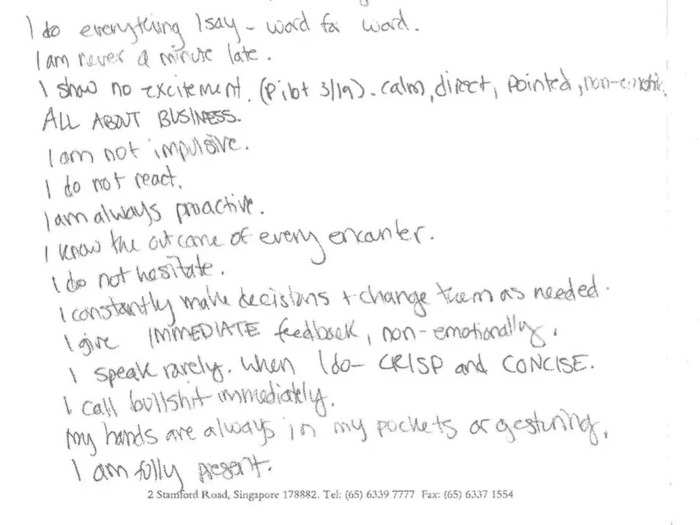 I do everything I say - word for word.
I am never a minute late.
I show no excitement. (Pilot 3/19). calm, direct, pointed, non-emotional.
ALL ABOUT BUSINESS.
I am not impulsive.
I do not react.
I am always proactive.
I know the outcome of every encounter.
I do not hesitate.
I constantly make decisions + change them as needed.
I give IMMEDIATE feedback, non-emotionally.
I speak rarely. When I do - CRISP and CONCISE.
I call bullshit immediately.
My hands are always in my pockets or gesturing.
I am fully present.
2 Stamford Road, Singapore 178882. Tel: (65) 6339 7777 Fax: (65) 6337 1554